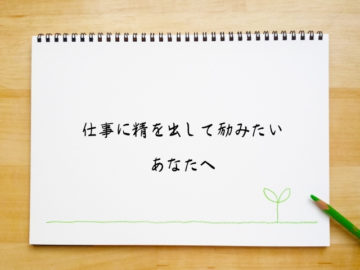 仕事に精を出して励みたい
あなたへ